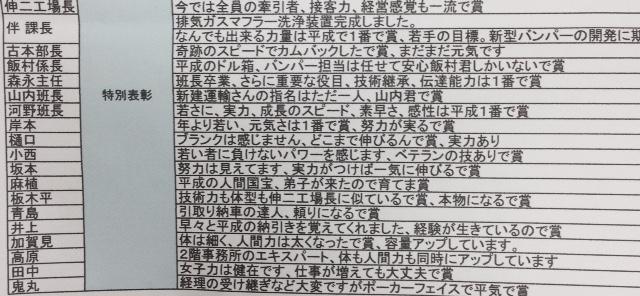 伸二工場長 今では全員の牽引者、接客力、経営感覚も一流で賞
伴 課長 排気ガスマフラー洗浄装置完成しました。
なんでも出来る力量は平成で1番で賞、若手の目標。新型バンパーの開発に期
古本部長 奇跡のスピードでカムバックしたで賞、まだまだ元気です
飯村係長 平成のドル箱、バンパー担当は任せて安心飯村君しかいないで賞
森永主任 班長卒業、さらに重要な役目、技術継承、伝達能力は1番で賞
山内班長 特別表彰 新建運輸さんの指名はただ一人、山内君で賞
河野班長 若さに、実力、成長のスピード、素早さ、感性は平成1番で賞
岸本 年より若い、元気さは1番で賞、努力が実るで賞
樋口 ブランクは感じません、どこまで伸びるんで賞、実力あり
小西 若い者に負けないパワーを感じます、ベテランの技ありで賞
坂本 努力は見えてます、実力がつけば一気に伸びるで賞
麻植 平成の人間国宝、弟子が来たので育てま賞
板木平 技術力も体型も伸二工場長に似ているで賞、本物になるで賞
青島 引取り納車の達人、頼りになるで賞
井上 早々と平成の納引きを覚えてくれました、経験が生きているので賞
加賀見 体は細く、人間力は太くなったで賞、容量アップしています。
高原 2階事務所のエキスパート、体も人間力も同時にアップしています
田中 女子力は健在です、仕事が増えても大丈夫で賞
鬼丸 経理の受け継ぎなど大変ですがポーカーフェイスで平気で賞